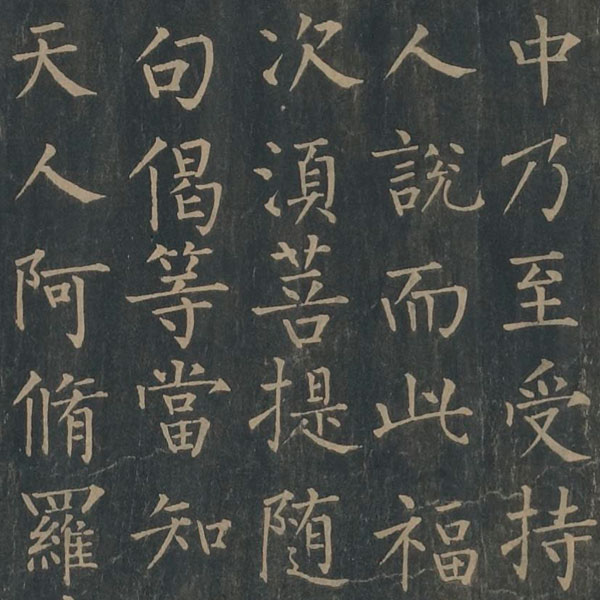 中乃至受持
人說而此福
次湏菩提随
句偈等當知
天人阿脩羅